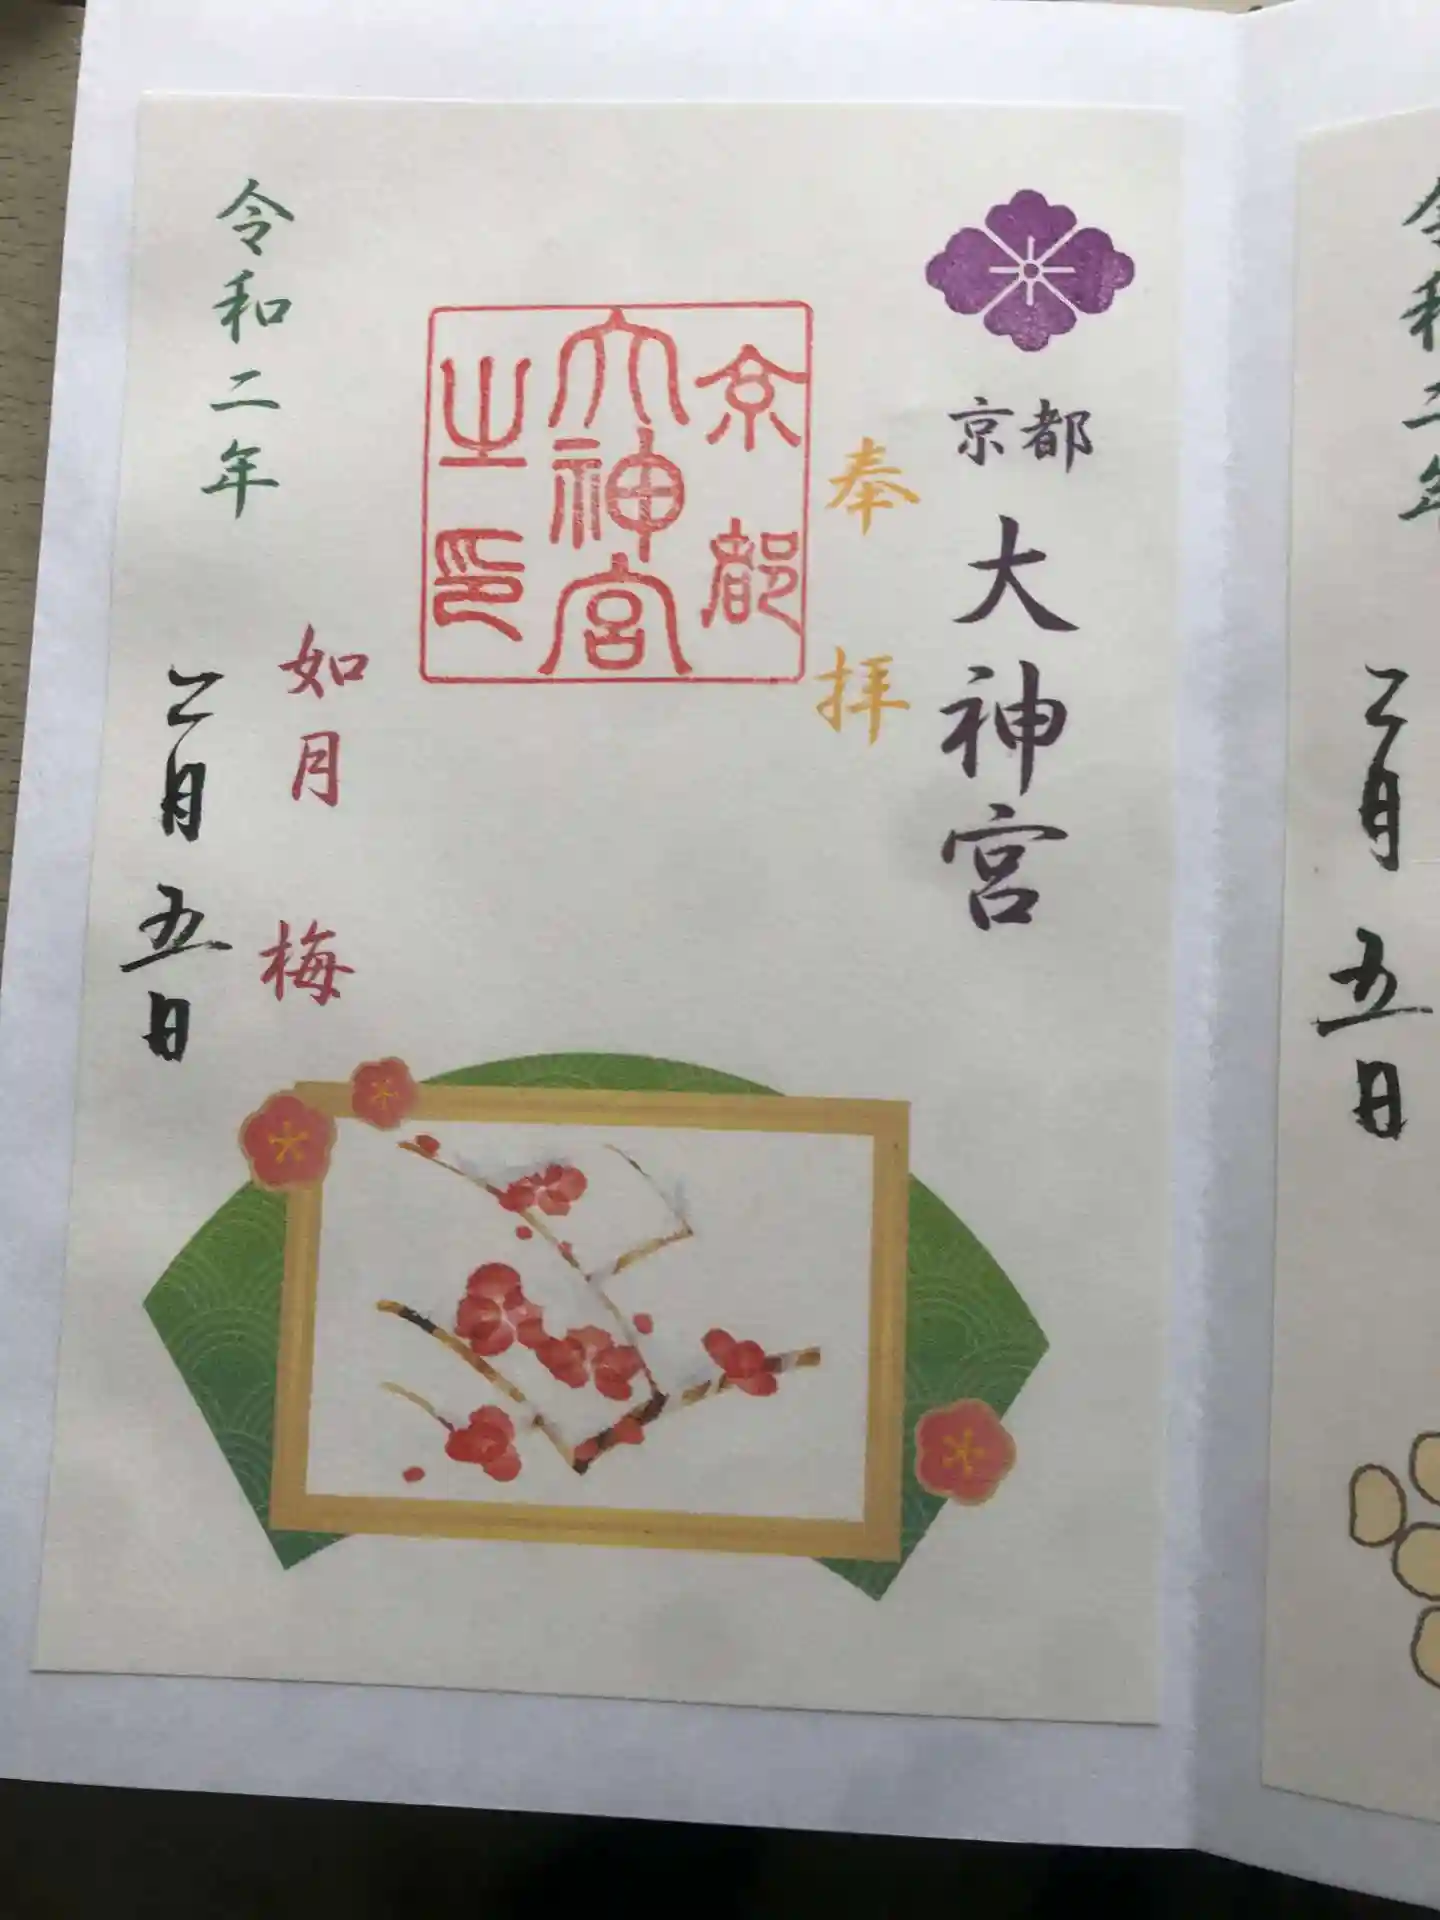 京都
大神宮
奉拝
京都
大神宮
之印
如月 梅
令和二年
二月五日
二月五日